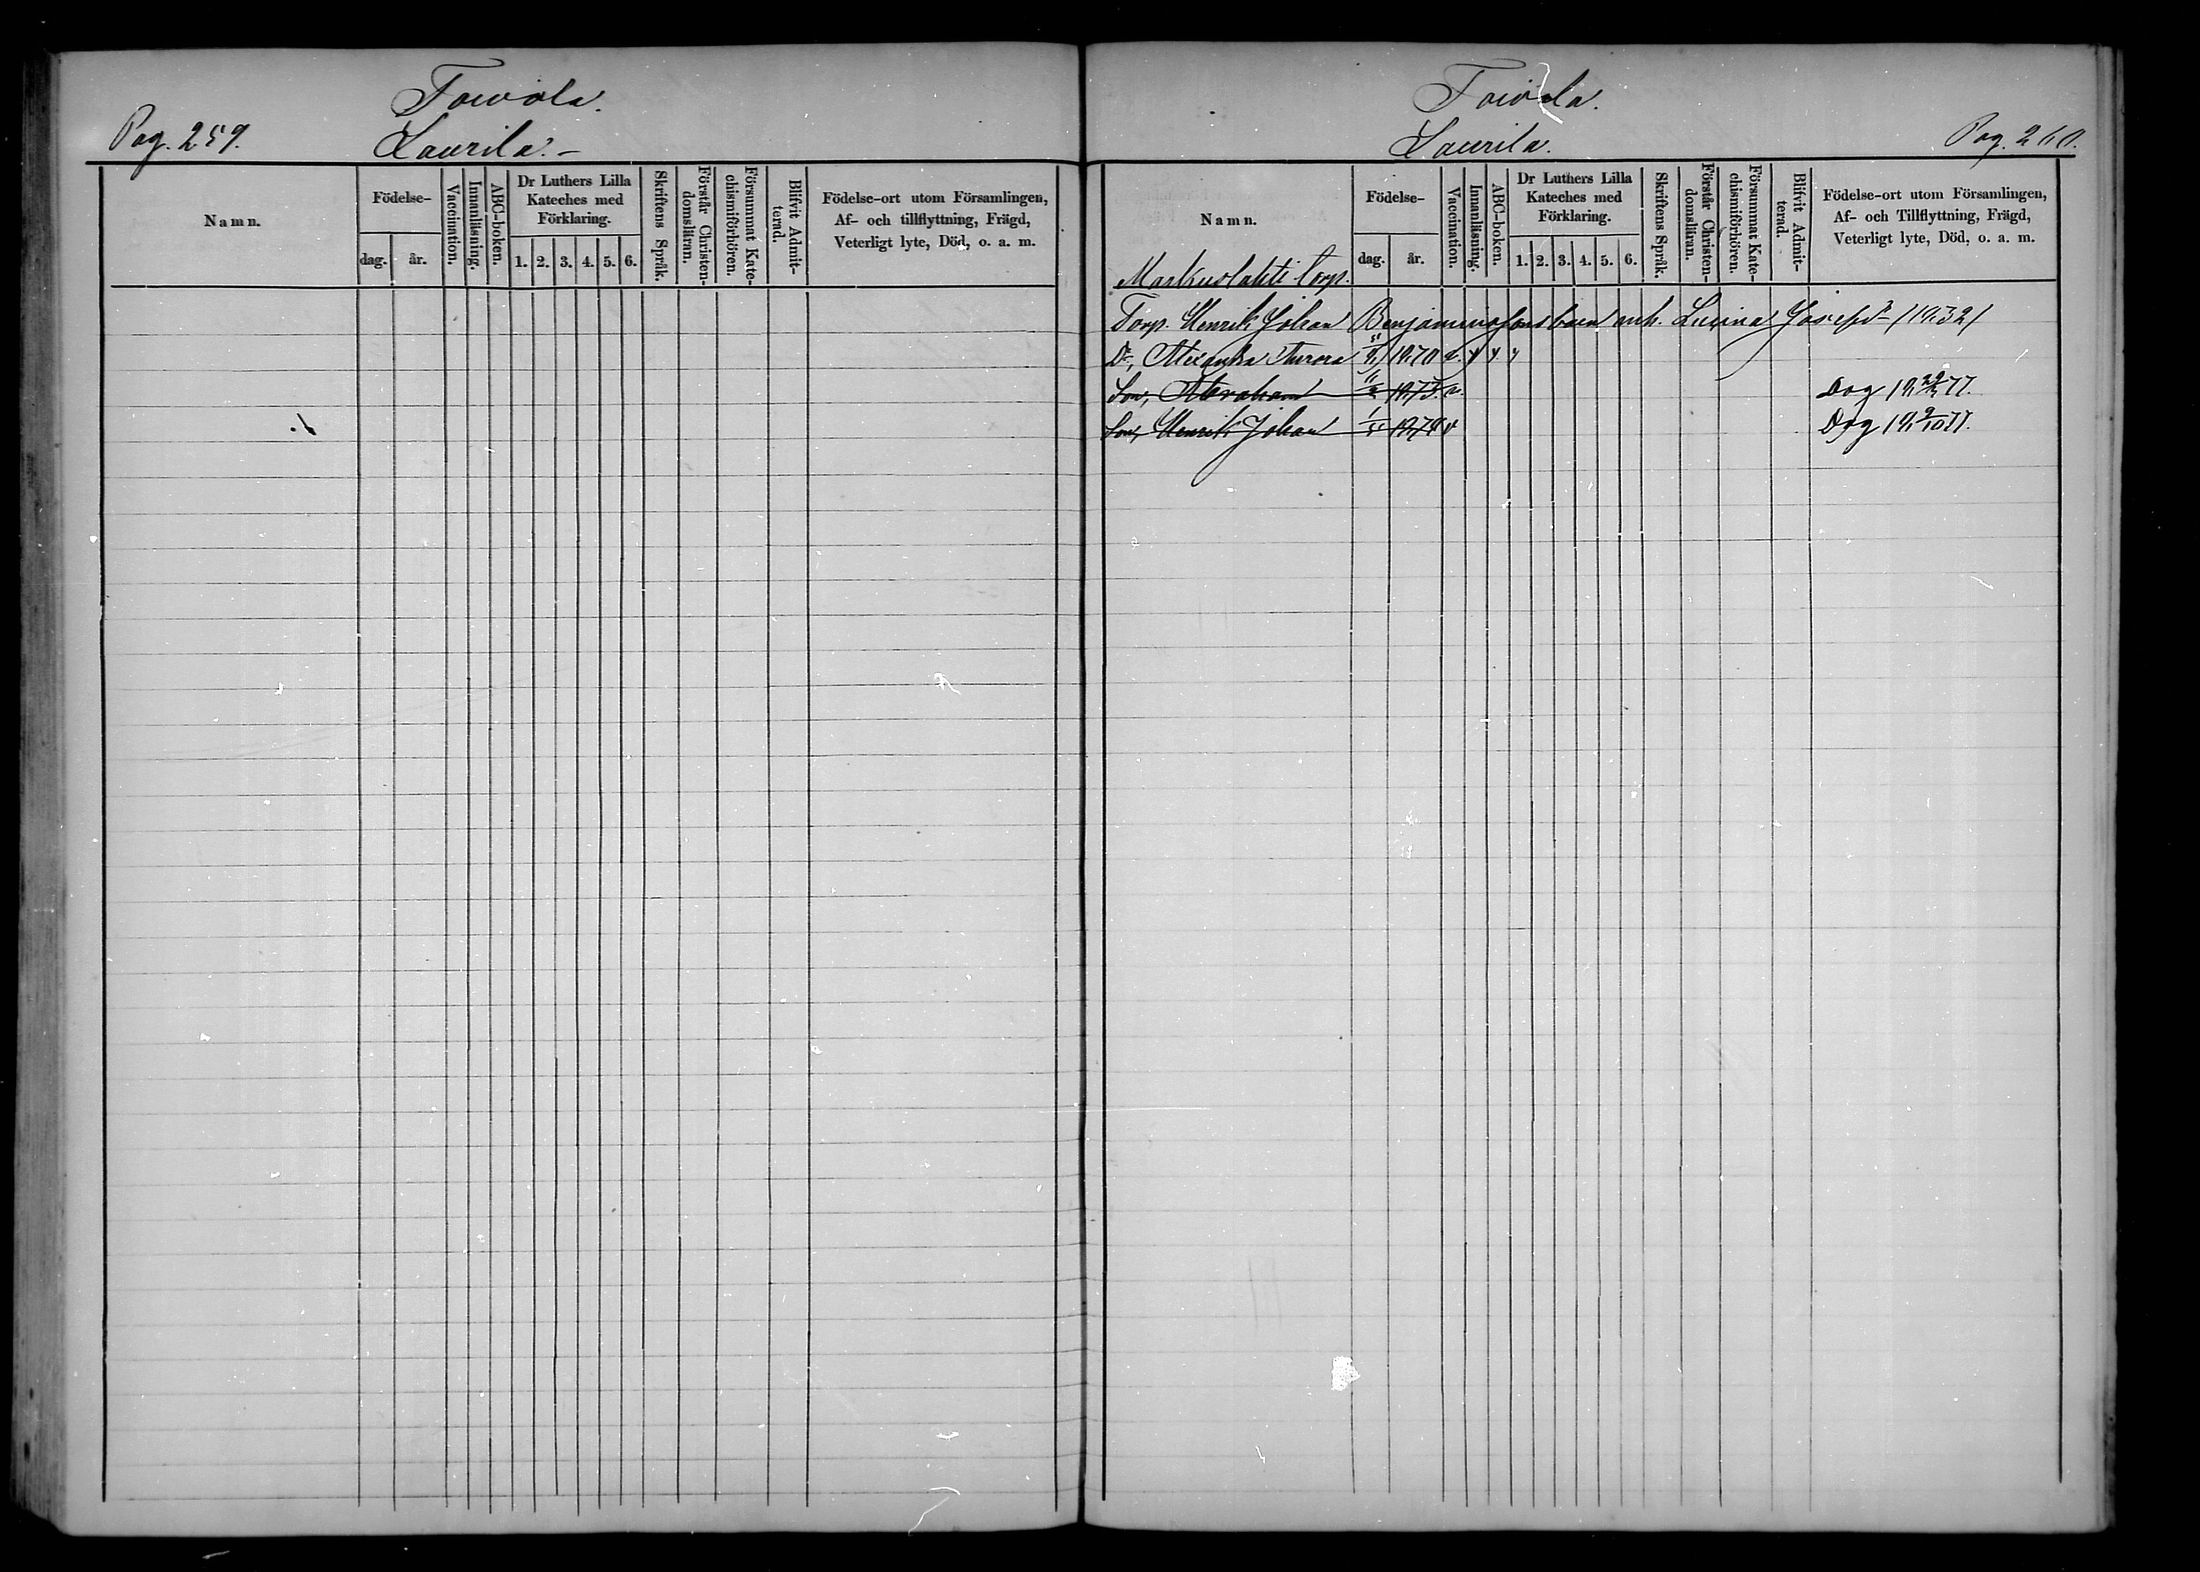 Pag. 259.
Toivola.
Laurila. –
Namn.
Födelse-
dag.
år.
Vaccination.
Innanläsning.
ABC-boken.
Dr Luthers Lilla
Kateches med
Förklaring.
1. 2. 3. 4. 5. 6.
Skriftens Språk.
Förstår Christen-
domsläran.
Försummat Kate-
chismiförhören.
Blifvit Admit-
terad.
Födelse-ort utom Församlingen,
Af- och tillflyttning, Frägd,
Veterligt lyte, Död, o. a. m.
Toivola.
Laurila.
Pag. 260.
Namn.
Födelse-
dag.
år.
Vaccination.
Innanläsning.
ABC-boken.
Dr Luthers Lilla
Kateches med
Förklaring.
1. 2. 3. 4. 5. 6.
Skriftens Språk.
Förstår Christen-
domsläran.
Försummat Kate-
chismiförhören.
Blifvit Admit-
terad.
Födelse-ort utom Församlingen,
Af- och Tillflyttning, Frägd,
Veterligt lyte, Död, o. a. m.
Markuslahti torp.
Torp. Henrik Johan Benjaminssons barn enk. Josefs- /1832/
Dr, Alexandra Aurora 1870 v.
Son, Abraham 1875. v. Dog 18 77.
Son, Henrik Johan 187 v Dog 18 9/10 77.